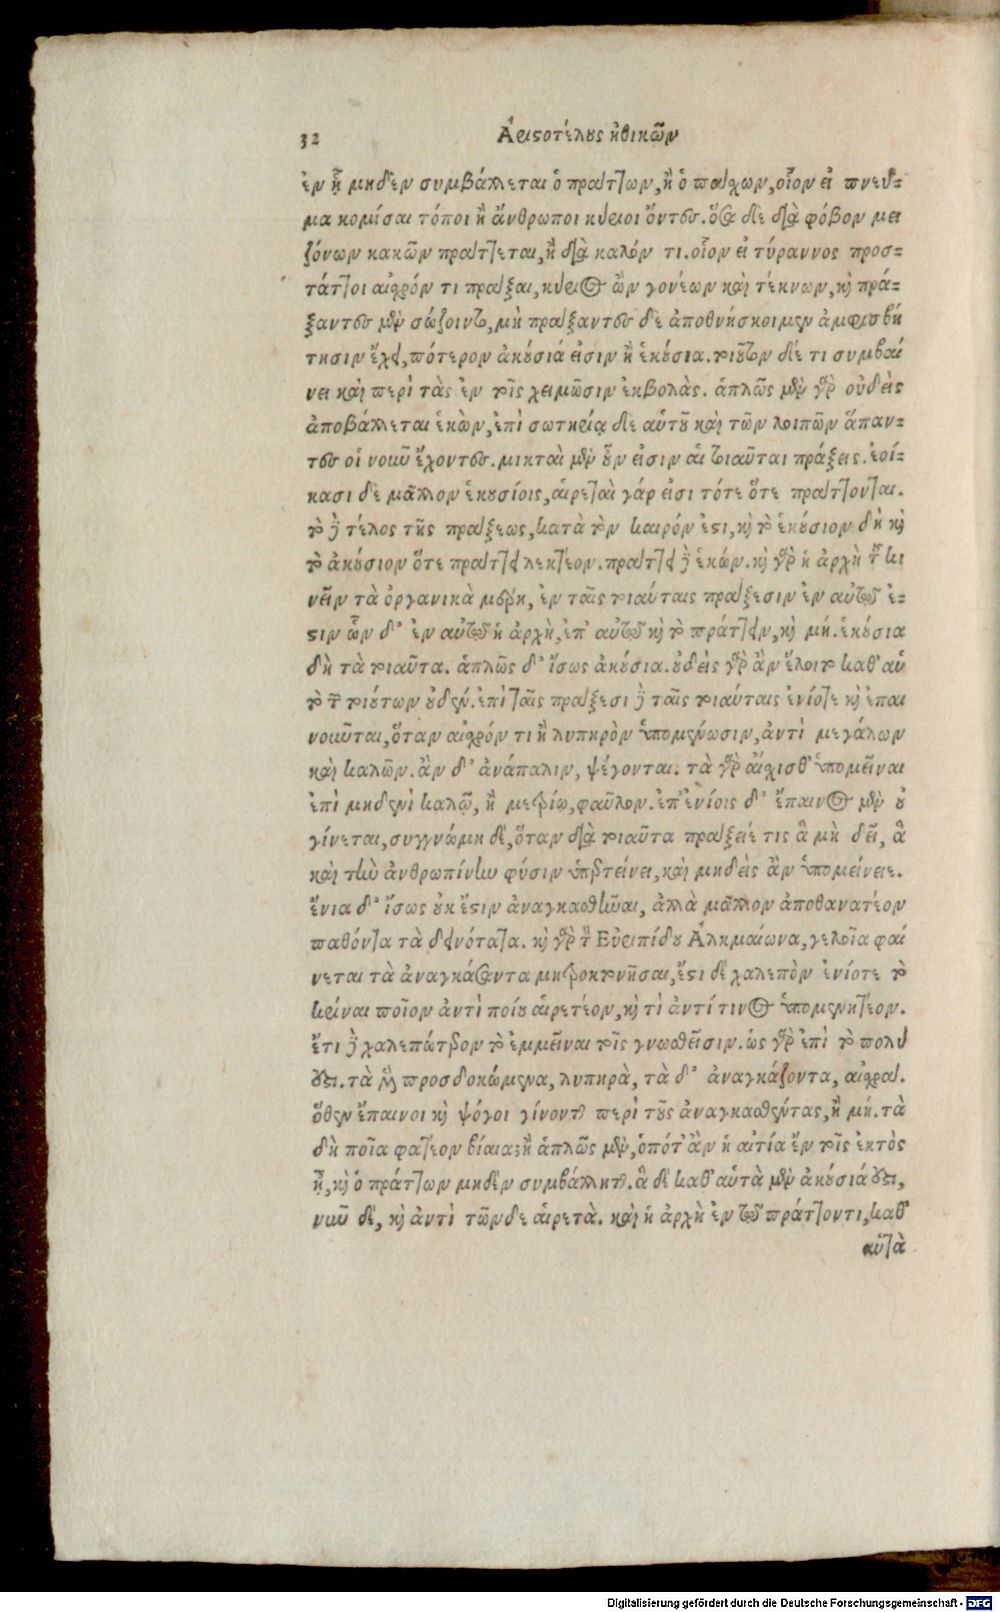 32 Ἀριστοτέλους ἠθικῶν
ἐν ᾗ μηδὲν συμβάλλεται ὁ πράττων, ἢ ὁ πάσχων, οἷον εἰ πνεῦ-
μα κομίσαι τόποι ἢ ἄνθρωποι κύριοι ὄντες. ὅσα δὲ διὰ φόβον μει
ζόνων κακῶν πράττεται, ἢ διὰ καλόν τι. οἷον εἰ τύραννος προσ-
τάττοι αἰσχρόν τι πράξαι, κύριος ὢν γονέων καὶ τέκνων, καὶ πρά-
ξαντος μὲν σώζοιντο, μὴ πράξαντος δὲ ἀποθνήσκοιμεν ἀμφισβή
τησιν ἔχει, πότερον ἀκούσιά εἰσιν ἢ ἑκούσια. τοιοῦτον δέ τι συμβαί
νει καὶ περὶ τὰς ἐν τοῖς χειμῶσιν ἐκβολάς. ἁπλῶς μὲν γὰρ οὐδεὶς
ἀποβάλλεται ἑκὼν, ἐπὶ σωτηρίᾳ δὲ αὑτοῦ καὶ τῶν λοιπῶν ἅπαν-
τες οἱ νοῦν ἔχοντες. μικταὶ μὲν οὖν εἰσιν αἱ τοιαῦται πράξεις. ἐοί-
κασι δὲ μᾶλλον ἑκουσίοις, αἱρεταὶ γάρ εἰσι τότε ὅτε πράττονται.
τὸ δὲ τέλος τῆς πράξεως, κατὰ τὸν καιρόν ἐστι, καὶ τὸ ἑκούσιον δὴ καὶ
τὸ ἀκούσιον ὅτε πράττει λεκτέον. πράττει δὲ ἑκών. καὶ γὰρ ἡ ἀρχὴ τοῦ κι
νεῖν τὰ ὀργανικὰ μέρη, ἐν ταῖς τοιαύταις πράξεσιν ἐν αὐτῷ ἐ-
στιν ὧν δ' ἐν αὐτῷ ἡ ἀρχὴ, ἐπ' αὐτῷ καὶ τὸ πράττειν, καὶ μή. ἑκούσια
δὴ τὰ τοιαῦτα. ἁπλῶς δ' ἴσως ἀκούσια. οὐδεὶς γὰρ ἂν ἕλοιτο καθ' αὑ
τὸ τῶν τοιούτων οὐδέν. ἐπὶ ταῖς πράξεσι δὲ ταῖς τοιαύταις ἐνίοτε καὶ ἐπαι
νοῦνται, ὅταν αἰσχρόν τι ἢ λυπηρὸν ὑπομένωσιν, ἀντὶ μεγάλων
καὶ καλῶν. ἂν δ' ἀνάπαλιν, ψέγονται. τὰ γὰρ αἴσχισθ' ὑπομεῖναι
ἐπὶ μηδενὶ καλῷ, ἢ μετρίῳ, φαῦλον. ἐπ' ἐνίοις δ' ἔπαινος μὲν οὐ
γίνεται, συγγνώμη δὲ, ὅταν διὰ τοιαῦτα πράξειέ τις ἃ μὴ δεῖ, ἃ
καὶ τὴν ἀνθρωπίνην φύσιν ὑπερτείνει, καὶ μηδεὶς ἂν ὑπομείνειε.
ἔνια δ' ἴσως οὐκ ἔστιν ἀναγκασθῆναι, ἀλλὰ μᾶλλον ἀποθανατέον
παθόντα τὰ δεινότατα. καὶ γὰρ τὸν Εὐριπίδου Ἀλκμαίωνα, γελοῖα φαί
νεται τὰ ἀναγκάσαντα μητροκτονῆσαι, ἔστι δὲ χαλεπὸν ἐνίοτε τὸ
κρίναι ποῖον ἀντὶ ποίου αἱρετέον, καὶ τί ἀντί τινος ὑπομενητέον.
ἔτι δὲ χαλεπώτερον τὸ ἐμμεῖναι τοῖς γνωσθεῖσιν. ὡς γὰρ ἐπὶ τὸ πολύ
ἐστι. τὰ μὲν προσδοκώμενα, λυπηρὰ, τὰ δ' ἀναγκάζοντα, αἰσχρά.
ὅθεν ἔπαινοι καὶ ψόγοι γίνονται περὶ τοὺς ἀναγκασθέντας, ἢ μή. τὰ
δὴ ποῖα φατέον βίαια; ἢ ἁπλῶς μὲν, ὁπότ' ἂν ἡ αἰτία ἐν τοῖς ἐκτὸς
ᾖ, καὶ ὁ πράττων μηδὲν συμβάλληται. ἃ δὲ καθ' αὑτὰ μὲν ἀκούσιά ἐστι,
νῦν δὲ, καὶ ἀντὶ τῶνδε αἱρετὰ. καὶ ἡ ἀρχὴ ἐν τῷ πράττοντι, καθ'
αὑτὰ
Digitalisierung gefördert durch die Deutsche Forschungsgemeinschaft - DFG